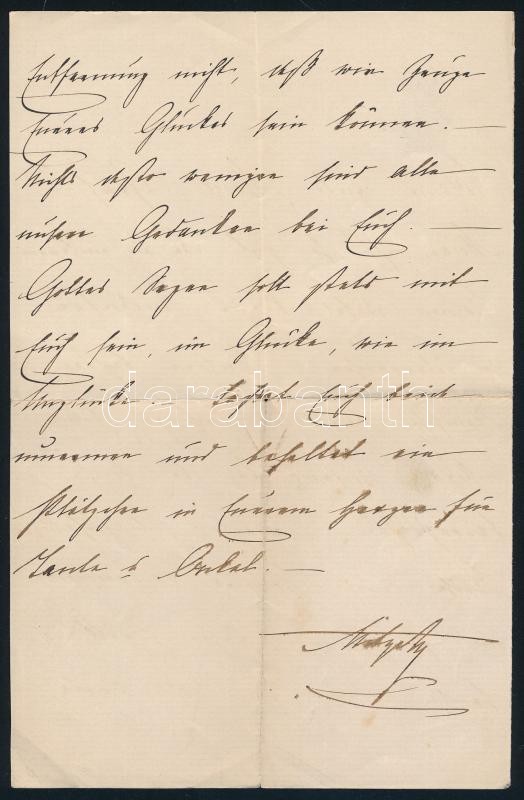 Entfernung nicht, daß wir Zeuge
Eueres Glückes sein können. —
Nichts desto weniger sind alle
unsere Gedanken bei Euch. —
Gottes Segen soll stets mit
Euch sein, im Glücke, wie im
Unglücke. — Laßet Euch beide
umarmen und behaltet ein
Plätzchen in Euerem Herzen für
Tante u Onkel. —
darabanth